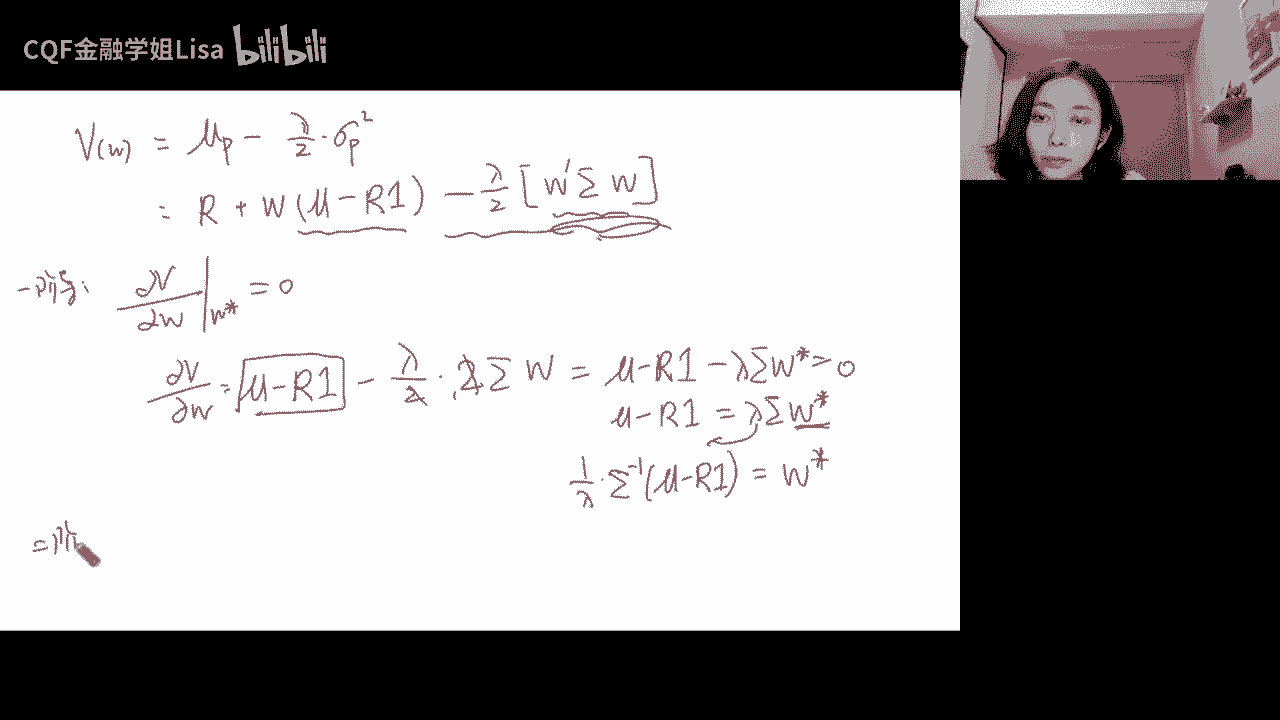 CQF金融学姐Lisa bilibili
V(w) = μp − λ/2 · σp²
= R + W(μ−R1) − λ/2 [w'Σw]
一阶导: ∂V/∂w |w* = 0
∂V/∂w = μ−R1 − λ/2 · 2Σw = μ−R1 − λΣw* = 0
μ−R1 = λΣw*
1/λ · Σ⁻¹(μ−R1) = w*
二阶